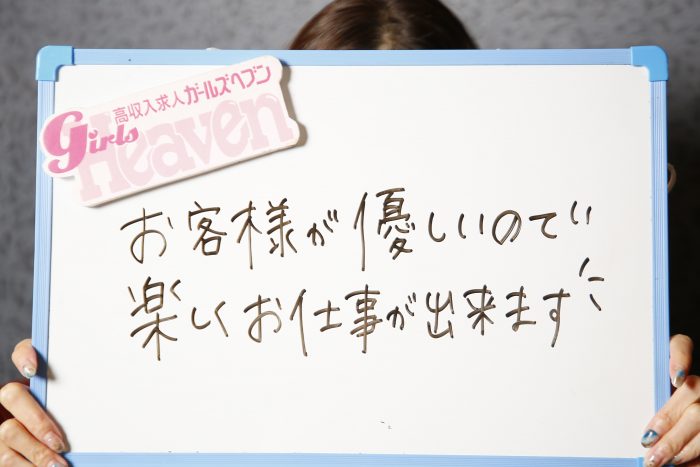 高収入求人ガールズヘブン
girls
Heaven
お客様が優しいので
楽しくお仕事が出来ます